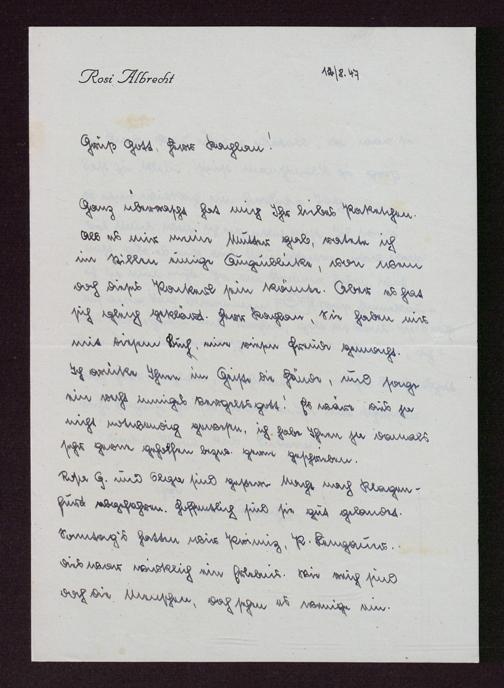 Rosi Albrecht
12/8.47
Grüß Gott, Herr Kaplan!
Ganz überrascht hat mich Ihr liebes Paketchen.
Als es mir meine Mutter gab, ratete ich
im Stillen einige Augenblicke, von wem
doch dieses Paketerl sein könnte. Aber es hat
sich gleich geklärt. Herr Kaplan. Sie haben mir
mit diesem Buch, eine riesen Freude gemacht.
Ich drücke Ihnen im Geiste die Hände, und sage
ein recht inniges Vergeltsgott! Es wäre das ja
nicht notwendig gewesen, ich habe Ihnen ja damals
sehr gern geholfen bezw. gern geschrieben.
Rese G. und Olga sind gestern Morgen nach Klagen-
furt abgefahren. Hoffentlich sind sie gut gelandet.
Sonntag's hatten wir Primiz, P.
das war wirklich ein Erlebnis. Wie reich sind
doch die Menschen, doch sehen es wenige ein.